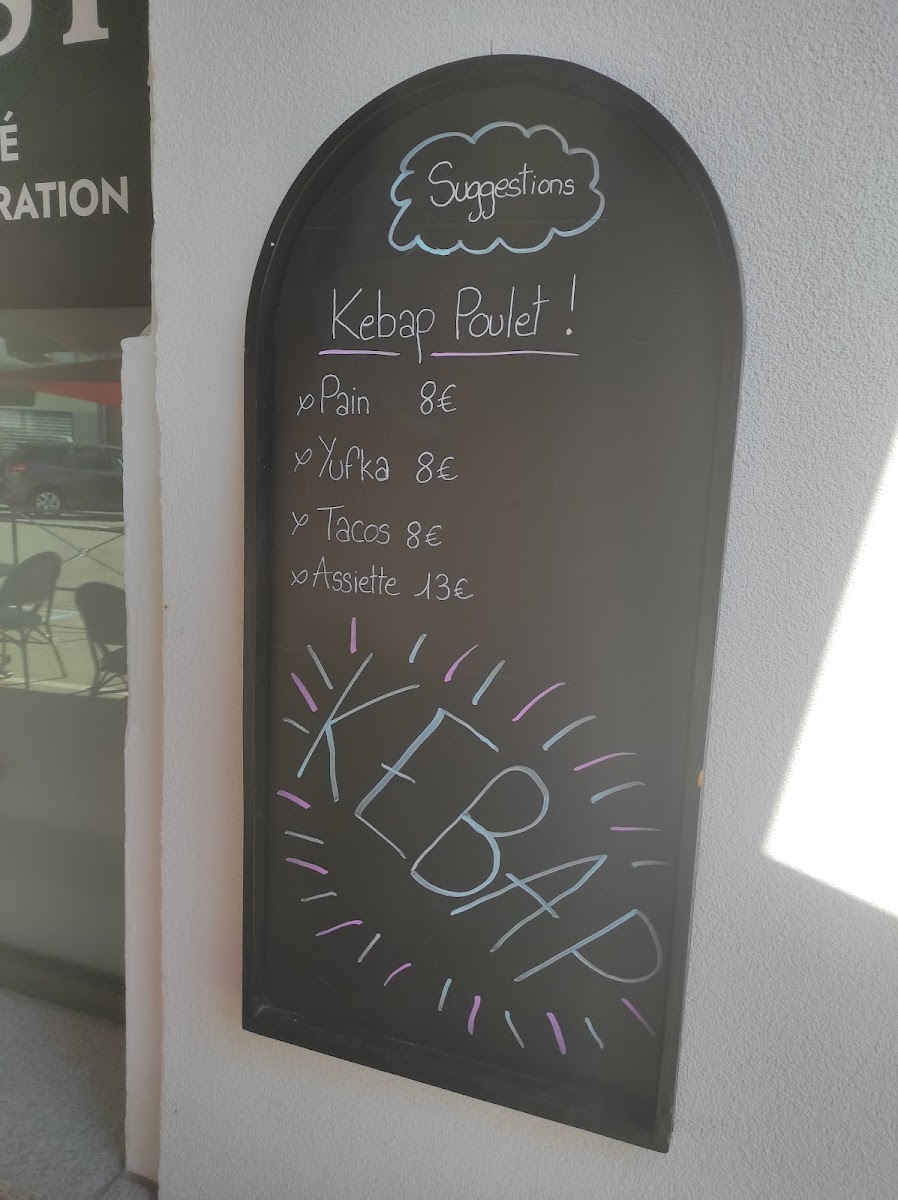 É
RATION
Suggestions
Kebap Poulet !
x Pain 8€
x Yufka 8€
x Tacos 8€
x Assiette 13€
KEBAP